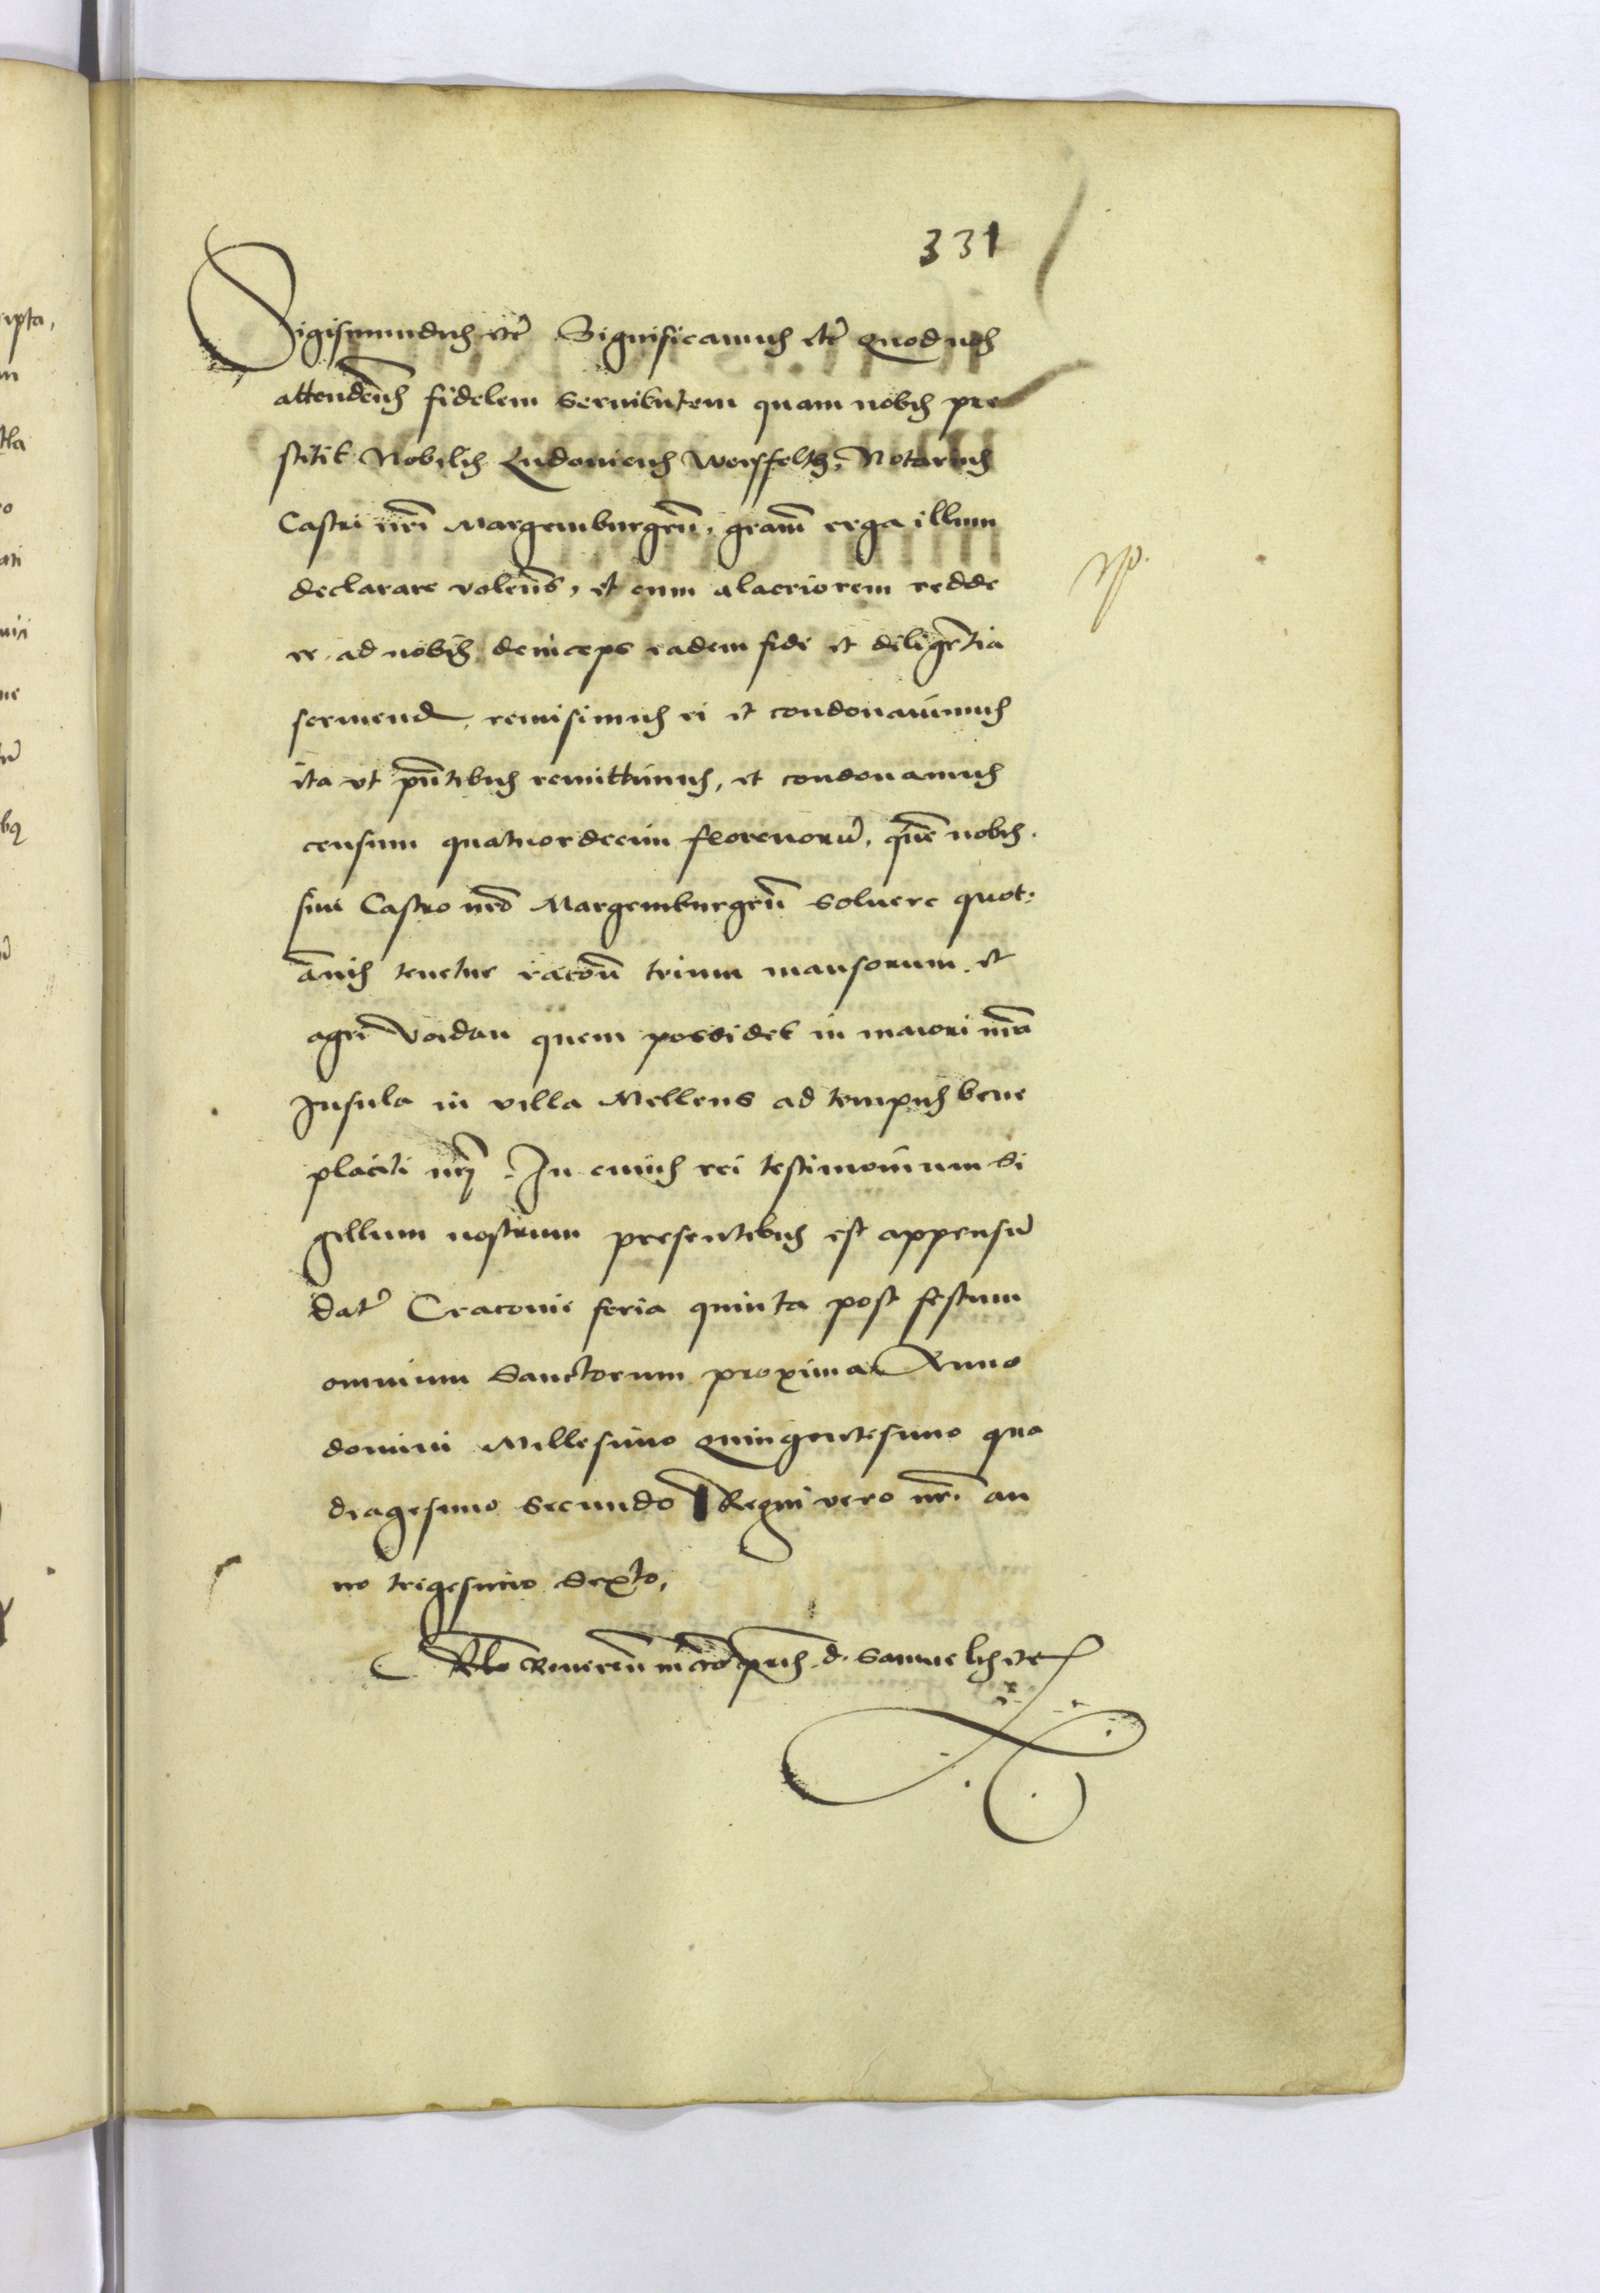 331
Sigismundus etc̃ Significamus etc̃ Quod nos
attendeñs fidelem seruitutem quam nobis pre
stitit Nobilis Ludouicus Weisfeltz, Notarius
Castri nrĩ Margemburgeñ, gram̃ erga illum
declarare voleñs, et eum alacriorem redde
re ad nobis deinceps eadem fide et diligẽtia
seruiend, remisimus ei et condonauimus
ita vt pñtibus remittimus, et condonamus
censum quatuordecim florenorũ, quẽ nobis
siue Castro nrõ Margemburgeñ soluere quot
ãnis tenetur racoñ trium mansorum et
agri quem possidet in maiori nrã
Insula in villa Mellens ad tempus bene
placiti nrj. In cuius rei testimonium Si
gillum nostrum presentibus est appensũ
datũ Cracouie feria quinta post festum
omnium Sanctorum proxima Anno
domini Millesimo Quingentesimo qua
dragesimo Secundo Regni vero nrĩ an
no trigesimo Sexto,
Rlo Reueren in cro pris d. Samuelis etc